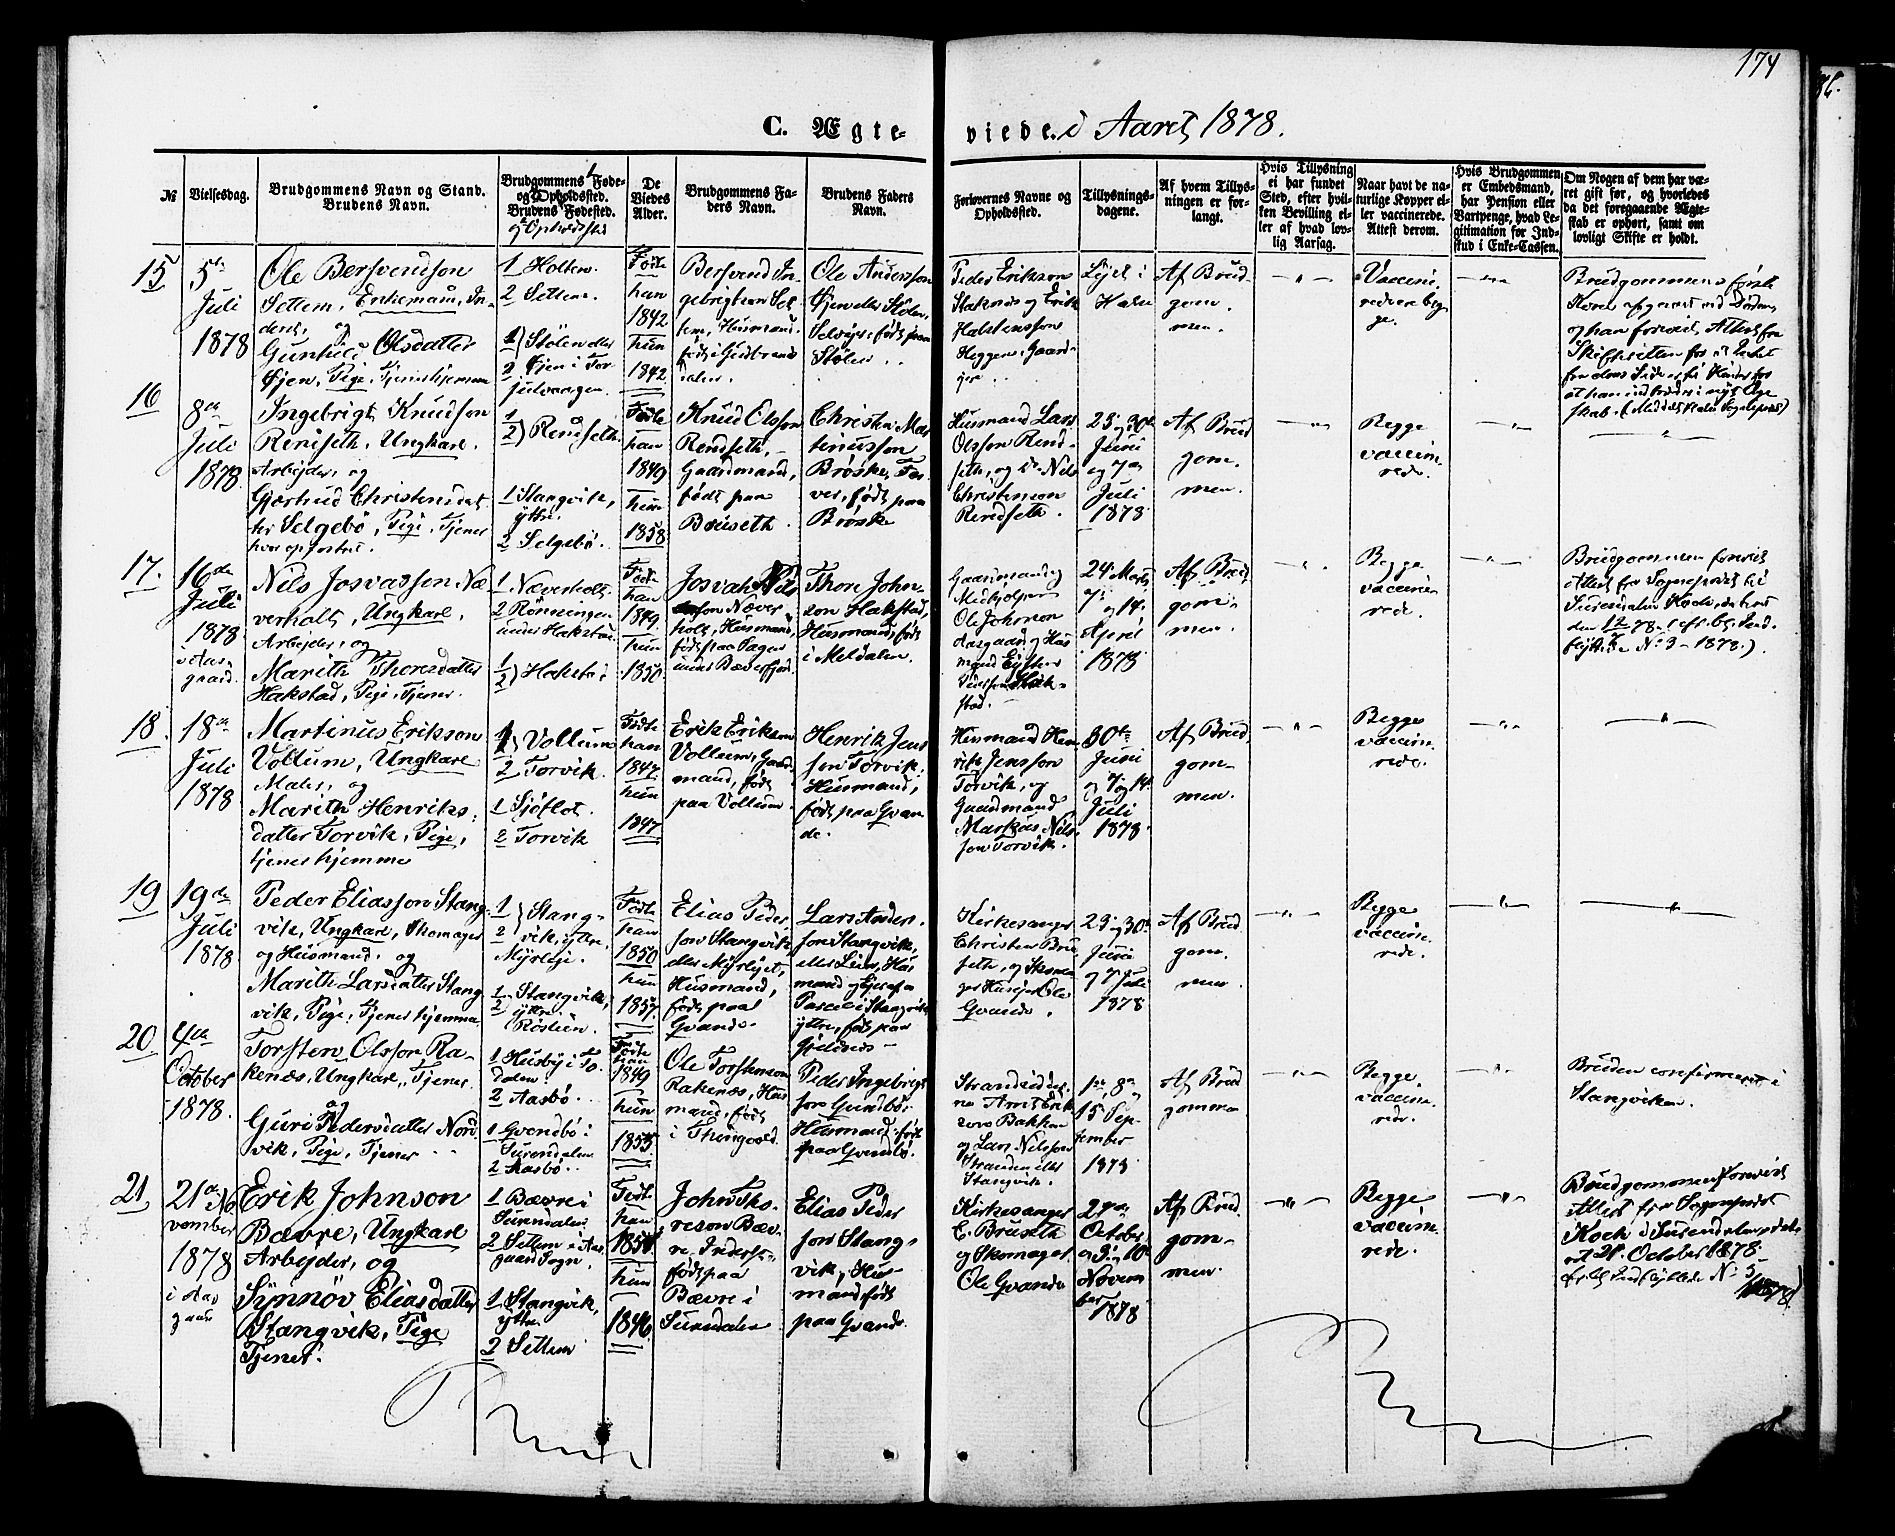 174
C. Ægteviede. i Aaret 1878.
№
Vielsesdag.
Brudgommens Navn og Stand.
Brudens Navn.
Brudgommens Føde-
og Opholdssted.
Brudens Fødested.
og Opholdssted
De
Viedes
Alder.
Brudgommens Fa-
ders Navn.
Brudens Faders
Navn.
Forlovernes Navne og
Opholdssted.
Tillysnings-
dagene.
Af hvem Tillys-
ningen er for-
langt.
Hvis Tillysning
ei har fundet
Sted, efter hvil-
ken Bevilling el-
ler af hvad lov-
lig Aarsag.
Naar havt de na-
turlige Kopper el-
ler vaccinerede.
Attest derom.
Hvis Brudgommen
er Embedsmand,
har Pension eller
Vartpenge, hvad Le-
gitimation for Ind-
skud i Enke-Cassen.
Om Nogen af dem har væ-
ret gift før, og hvorledes
da det foregaaende Ægte-
skab er ophørt, samt om
lovligt Skifte er holdt.
15
5te
Juli
1878
Ole Bersvendson
Settem, Enkemand, In-
derst, og
Gunhild Olsdatter
Øjen, Pige, Tjener hjemme
1 Holten.
2 Settem.
1) Stölen eller
2 Øjen i Tor-
julvaagen.
Födte
han
1842
hun
1842
Bersvend In-
gebrigtson Set-
tem, Husmand,
födt i Gudbrands
dalen.
Ole Anderson
Øjen eller Stölen,
Selvejer, födt paa
Stölen.
Peder Erikson
Staknes og Erik
Halstensson
Heggem, Gaard-
Lyst i
Halse
Af Brud-
gom-
men.
— „ —
Vaccine-
rede beg-
ge.
— „ —
Brudgommens förste
Kone afgaaet ved Döden,
og han foreviist Attest fra
Skifteretten
16
8de
Juli
1878.
Ingebrigt Knudson
Rendseth, Ungkarl.
Arbejder, og
Gjertrud Christensdat-
ter Selgebö, Pige, Tjener
hos opfostret.
1
2) Rendseth
1 Stangvik,
ytre.
2 Selgebö.
Födte
han
1849
hun
1858
Knud Olsson
Rendseth,
Gaardmand,
födt paa
Bruseth.
Christen Mar-
tinusson
Bröske, Far-
ver, födt paa
Bröske
Husmand Lars
Olsson Rend-
seth, og Nils
Christenson
Rendseth.
23 og 30te
Juni
og 7de
Juli
1878
Af Brud-
gom-
men.
— „ —
Begge
vaccine-
rede.
— „ —
— „ —
17.
16de
Juli
1878
i Aas-
gaard.
Nils Josvasson Næ-
verholt, Ungkarl.
Arbejder, og
Marith Thoresdatter
Hakstad, Pige, Tjener.
1 Næverholt.
2 Rönningen
under Hakstad
1
2) Hakstad
Födte
han
1849
hun
1850
Josvah Nils-
son Næver-
holt, Husmand,
födt paa
under Bæverfjord
Thore John-
son Hakstad,
Husmand, födt
i Meldalen.
Gaardmand og
Ole Johnson
Aasgaard, og Hus-
mand
Pederson Hak-
stad.
24 Marts
7de og 14.
April
1878
Af Brud-
gom-
men.
— „ —
Begge
vaccine-
rede.
— „ —
Brudgommen foreviist
Attest fra Sognepræst til
Surendalen Koch, dateret
No 3 - 1878.)
18
18de
Juli
1878
Martinus Erikson
Vollum, Ungkarl
Maler, og
Marith Henriks-
datter Torvik, Pige,
tjener hjemme
1 Vollum
2 Torvik.
1 Sjöflot.
2 Torvik
Födte
han
1847
hun
1847
Erik Erikson
Vollum, Gaard-
mand, födt
paa Vollum.
Henrik Jens-
son Torvik.
Husmand,
födt paa Gvan-
de.
Husmand Hen-
rik Jensson
Torvik, og
Gaardmand
Markus Nils-
son Torvik.
30te
Juni
og 7 og 14
Juli
1878
Af Brud-
gom-
men.
— „ —
Begge
vaccine-
rede.
— „ —
— „ —
19
19de
Juli
1878
Peder Eliasson Stang-
vik, Ungkarl, Skomager
og Husmand, og
Marith Larsdatter Stang-
vik, Pige, Tjener hjemme.
1
2) Stang-
vik, ytre.
Myrleje.
1
2 Stangvik,
ytre
Födte
han
1850
hun
1857
Elias Peder-
son Stangvik
eller Myrlejet,
Husmand,
födt paa
Gvande.
Lars Ander-
son Stangvik,
eller Lien, Hus-
mand og Ejer af en
Parcel i Stangvik
ytre, födt paa
Kirkesanger
Christen Bru-
seth, og Skoma-
ger Husejer Ole
Gvande.
23 og 30te
Juni
og 7 Juli
1878
Af Brud-
gom-
men
— „ —
Begge
vaccine-
rede.
— „ —
— „ —
20
4de
October
1878.
Torsten Olsson Ra-
kenæs, Ungkarl, Tjener.
og
Guri Pedersdatter Nord-
vik, Pige, Tjener
1 Husby i To-
dalen.
2 Aasbö.
1 Gvendbö i
Surendalen
2 Aasbö.
Födte
han
1849
hun
1855
Ole Torstenson
Rakenæs, Hus-
mand, födt
i Thingvold.
Peder Ingebrigt-
son Gvendbö,
Husmand, födt
paa Gvendbö.
Strandsidder-
ne Arnt Erik-
son Bakken
og Lars Nilsson
Stranden eller
Stangvik.
1ste, 8de
15 Sep-
tember
1878
Af Brud-
gommen
— „ —
Begge
vaccine-
rede.
— „ —
Bruden confirmeret i
Stangviken.
21
21de No-
vember
1878
i Aas-
gaard
Erik Johnson
Bævre, Ungkarl
Arbejder, og
Synnöv Eliasdatter
Stangvik, Pige
Tjener.
1 Bævre i
Surendalen
2 Settem i Aas-
gaard Sogn.
1 Stangvik,
ytre.
2 Settem
Födte
han
hun
1846
John Tho-
reson Bæv-
re, Inderst,
födt paa
Bævre i
Surendalen
Elias Peder-
son Stang-
vik, Hus-
mand födt
paa Gvande.
Kirkesanger
C. Bruseth
og Skomager
Ole Gvande
27de
October
og 3. og 10de
Novem-
ber
1878
Af Brud-
gom-
men.
— „ —
Begge
vaccine-
rede.
— „ —
Brudgommen foreviist
Attest fra Sognepræst
Koch i Surendalen, date-
ret 21. October 1878.
No 5
1878)